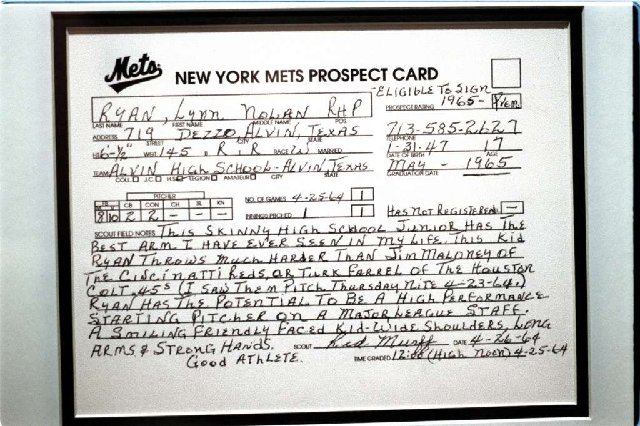 Mets
NEW YORK METS PROSPECT CARD
ELIGIBLE TO SIGN
RYAN, Lynn NOLAN RHP
PROSPECT RATING 1965-
LAST NAME FIRST NAME MIDDLE NAME POS.
ADDRESS 719 DEZZO ALVIN, TEXAS 713-585-2627
STREET CITY STATE TELEPHONE
HT. 6-½" WGT. 145 R R RACE (W) MARRIED 1-31-47 17
DATE OF BIRTH AGE
TEAM ALVIN HIGH SCHOOL-ALVIN TEXAS MAY - 1965
COLL J.C. H.S. LEGION AMATEUR CITY STATE GRADUATION DATE
PITCHER
FB CB CON CH SL KN NO. OF GAMES 4-25-64 1
8/10 2 2 - - - INNINGS PITCHED 1 HAS NOT REGISTERED -
SCOUT FIELD NOTES THIS SKINNY HIGH SCHOOL JUNIOR HAS THE
BEST ARM I HAVE EVER SEEN IN MY LIFE. THIS KID
RYAN THROWS MUCH HARDER THAN JIM MALONEY OF
THE CINCINATTI REDS, OR TURK FARREL OF THE HOUSTON
COLT .45S (I SAW THEM PITCH THURSDAY NITE 4-23-64.)
RYAN HAS THE POTENTIAL TO BE A HIGH PERFORMANCE
STARTING PITCHER ON A MAJOR LEAGUE STAFF.
A SMILING FRIENDLY FACED KID-WIDE SHOULDERS, LONG
ARMS & STRONG HANDS. SCOUT Red Murff DATE 4-26-64
GOOD ATHLETE. TIME GRADED 12:00 (HIGH NOON) 4-25-64